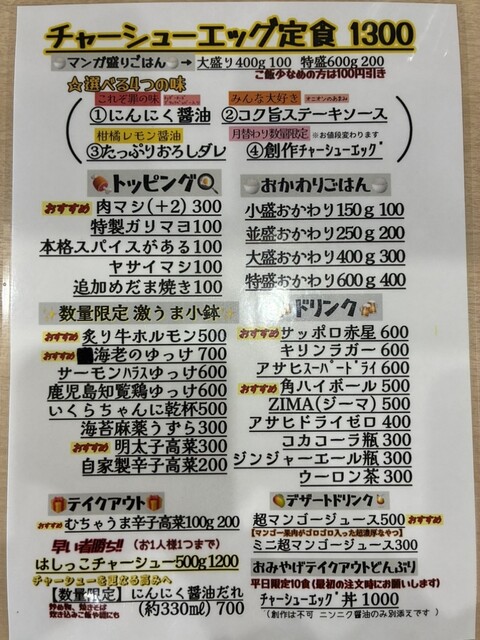 チャーシューエッグ定食 1300
🍚マンガ盛りごはん🍚→ 大盛り400g 100 特盛600g 200
ご飯少なめの方は100円引き
☆選べる4つの味
これぞ罪の味
①にんにく醤油
みんな大好き オニオンのあまみ
②コク旨ステーキソース
柑橘レモン醤油
③たっぷりおろしダレ
月替わり数量限定 ※お値段変わります
④創作チャーシューエッグ
トッピング
おすすめ 肉マシ(+2) 300
特製ガリマヨ100
本格スパイスがある100
ヤサイマシ100
追加めだま焼き100
おかわりごはん
小盛おかわり150g 100
並盛おかわり250g 200
大盛おかわり400g 300
特盛おかわり600g 400
数量限定 激うま小鉢
おすすめ 炙り牛ホルモン500
おすすめ 海老のゆっけ 700
サーモンハラスゆっけ600
鹿児島知覧鶏ゆっけ600
いくらちゃんに乾杯500
海苔麻薬うずら300
おすすめ 明太子高菜300
自家製辛子高菜200
ドリンク
おすすめ サッポロ赤星 600
キリンラガー 600
アサヒスーパードライ 600
おすすめ 角ハイボール 500
ZIMA(ジーマ) 500
アサヒドライゼロ 400
コカコーラ瓶 300
ジンジャーエール瓶 300
ウーロン茶 300
テイクアウト
おすすめ むちゃうま辛子高菜100g 200
早い者勝ち!! (お1人様1つまで)
はしっこチャーシュー500g1200
チャーシューを更なる高みへ
【数量限定】にんにく醤油だれ
炒め物、焼きそば
炊き込みご飯や鍋にも
(約330ml) 700
デザートドリンク
超マンゴージュース500 おすすめ
【マンゴー果肉がゴロゴロ入った超濃厚なやつ】
ミニ超マンゴージュース 300
おみやげテイクアウトどんぶり
平日限定10食(最初の注文時にお願いします)
チャーシューエッグ丼 1000
(創作は不可 ニンニク醤油のみ別添えです)